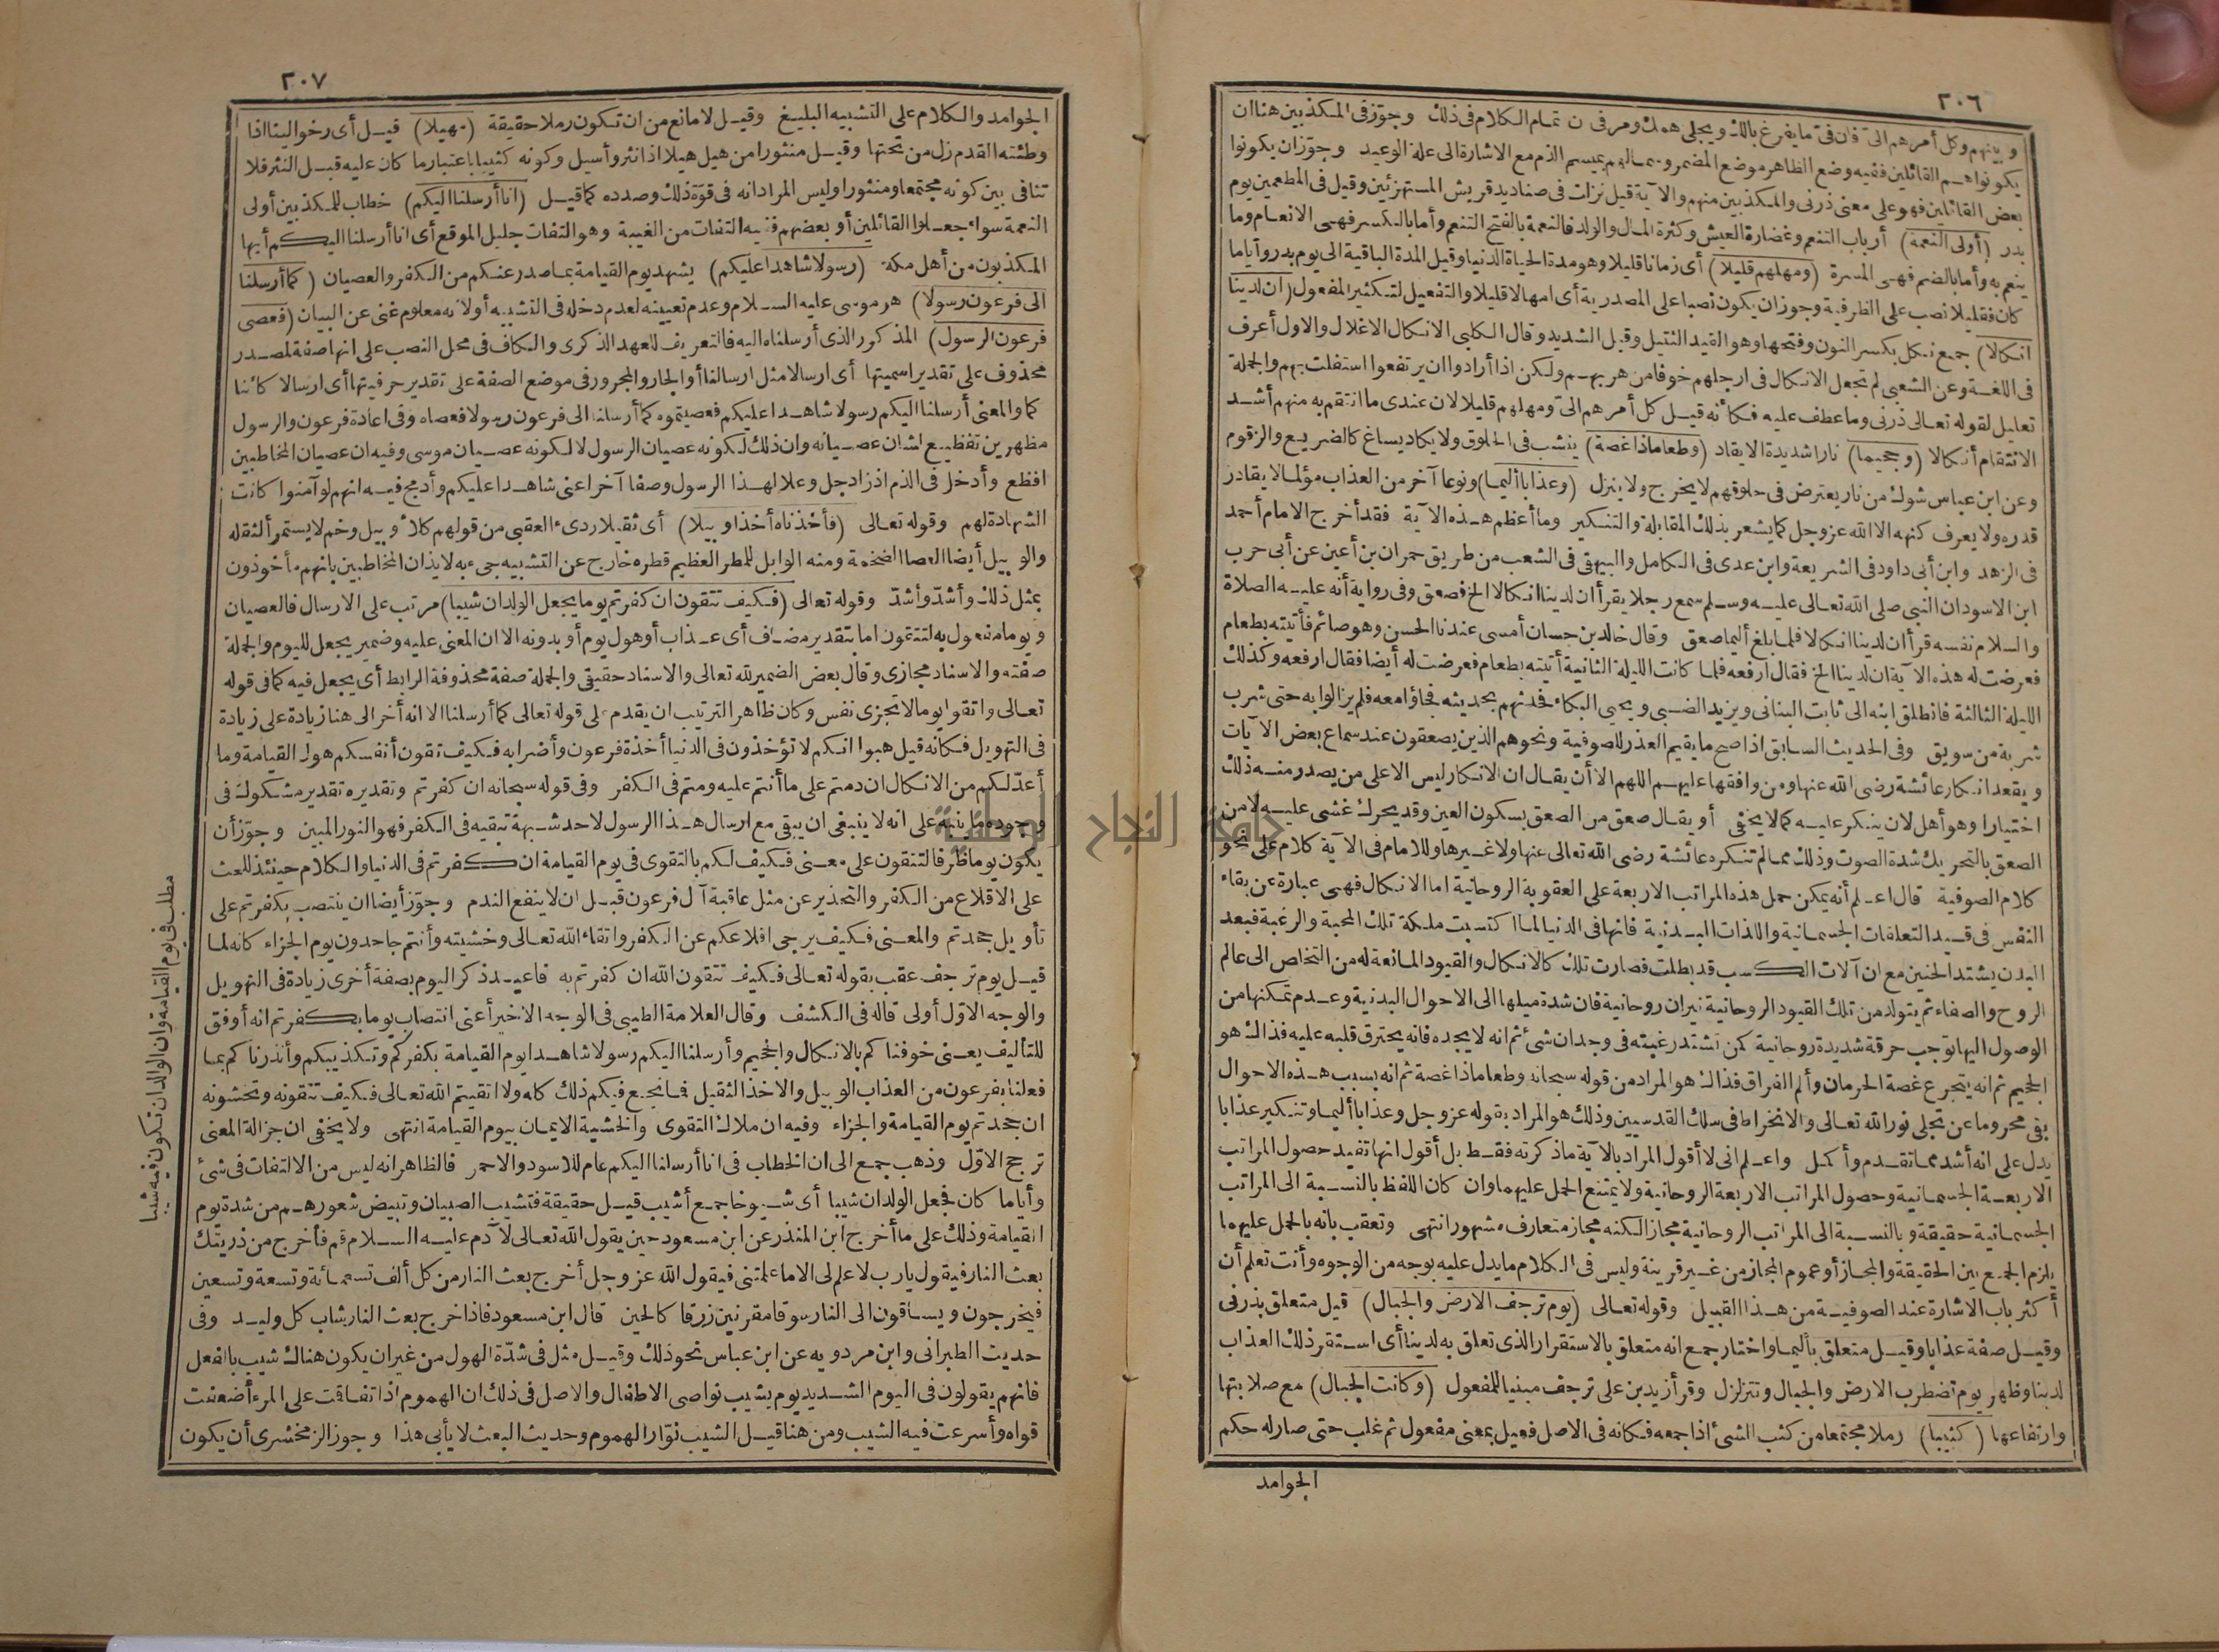 ٢٠٦
وبينهم وكل أمرهم الى فان في ما يفرغ بالك ويجلي همك ومر في ن تمام الكلام في ذلك وجوز في المكذبين هنا ان
يكونوا هم القائلين ففيه وضع الظاهر موضع المضمر وسمالهم بميسم الذم مع الاشارة الى علة الوعيد وجوز ان يكونوا
بعض القائلين فهو على معنى ذرني والمكذبين منهم والآية قيل نزلت في صناديد قريش المستهزئين وقيل في المطعمين يوم
بدر (أولى النعمة) أرباب التنعم وغضارة العيش وكثرة المال والولد فالنعمة بالفتح التنعم وأما بالكسر فهى الانعام وما
ينعم به وأما بالضم فهى المسرة (ومهلهم قليلا) أى زمانا قليلا وهو مدة الحياة الدنيا وقيل المدة الباقية الى يوم بدر وأياما
كان فقليلا نصب على الظرفية وجوز ان يكون نصبا على المصدرية أى امهالا قليلا والتفعيل لتكثير المفعول (ان لدينا
انكالا) جمع نكل بكسر النون وفتحها وهو القيد الثقيل وقيل الشديد وقال الكلبى الانكال الاغلال والاول أعرف
فى اللغة وعن الشعبى لم تجعل الانكال فى ارجلهم خوفا من هربهم ولكن اذا أرادوا ان يرتفعوا استفلت بهم والجملة
تعليل لقوله تعالى ذرنى وما عطف عليه فكأنه قيل كل أمرهم الى ومهلهم قليلا لان عندى ما انتقم به منهم أشد
الانتقام أنكالا (وجحيما) نارا شديدة الايقاد (وطعاما ذا غصة) ينشب فى الحلوق ولا يكاد يساغ كالضريع والزقوم
وعن ابن عباس شوك من نار يعترض فى حلوقهم لا يخرج ولا ينزل (وعذابا أليما) ونوعا آخر من العذاب مؤلما لا يقادر
قدره ولا يعرف كنهه الا الله عز وجل كما يشعر بذلك المقابلة والتنكير وما أعظم هذه الآية فقد أخرج الامام أحمد
فى الزهد وابن أبى داود فى الشريعة وابن عدى فى الكامل والبيهقى فى الشعب من طريق حمران بن أعين عن أبى حرب
ابن الاسود ان النبى صلى الله تعالى عليه وسلم سمع رجلا يقرأ ان لدينا انكالا الخ فصعق وفى رواية أنه عليه الصلاة
والسلام نفسه قرأ ان لدينا انكالا فلما بلغ أليما صعق وقال خالد بن حسان أمسى عندنا الحسن وهو صائم فأتيته بطعام
فعرضت له هذه الآية ان لدينا الخ فقال ارفعه فلما كانت الليلة الثانية أتيته بطعام فعرضت له أيضا فقال ارفعه وكذلك
الليلة الثالثة فانطلق ابنه الى ثابت البنانى ويزيد الضبى ويحيى البكاء فحدثهم بحديثه فجاؤا معه فلم يزالوا به حتى شرب
شربة من سويق وفى الحديث السابق اذا صح ما يقيم العذر للصوفية ونحوهم الذين يصعقون عند سماع بعض الآيات
ويقعد انكار عائشة رضى الله عنها ومن وافقها عليهم اللهم الا أن يقال ان الانكار ليس الا على من يصدر منه ذلك
اختيارا وهو أهل لان ينكر عليه كما لا يخفى أو يقال صعق من الصعق بسكون العين وقد يحرك غشى عليه لا من
الصعق بالتحريك شدة الصوت وذلك مما لم تنكره عائشة رضى الله تعالى عنها ولا غيرها وللامام فى الآية كلام على نحو
كلام الصوفية قال اعلم أنه يمكن حمل هذه المراتب الاربعة على العقوبة الروحانية اما الانكال فهى عبارة عن بقاء
النفس فى قيد التعلقات الجسمانية واللذات البدنية فانها فى الدنيا لما اكتسبت ملكة تلك المحبة والرغبة فبعد
البدن يشتد الحنين مع ان آلات الكسب قد بطلت فصارت تلك كالانكال والقيود المانعة له من التخاص الى عالم
الروح والصفاء ثم يتولد من تلك القيود الروحانية نيران روحانية فان شدة ميلها الى الاحوال البدنية وعدم تمكنها من
الوصول اليها توجب حرقة شديدة روحانية كمن تشتد رغبته فى وجدان شئ ثم انه لا يجده فانه يحترق قلبه عليه فذاك هو
الجحيم ثم انه يتجرع غصة الحرمان وألم الفراق فذاك هو المراد من قوله سبحانه وطعاما ذا غصة ثم انه بسبب هذه الاحوال
بقى محروما عن تجلى نور الله تعالى والانخراط فى سلك القدسيين وذلك هو المراد بقوله عز وجل وعذابا أليما وتنكير عذابا
يدل على انه أشد مما تقدم وأكمل واعلم انى لا أقول المراد بالآية ما ذكرته فقط بل أقول انها تفيد حصول المراتب
الاربعة الجسمانية وحصول المراتب الاربعة الروحانية ولا يمتنع الحمل عليهما وان كان اللفظ بالنسبة الى المراتب
الجسمانية حقيقة وبالنسبة الى المراتب الروحانية مجازا لكنه مجاز متعارف مشهور انتهى وتعقب بانه بالحمل عليهما
يلزم الجمع بين الحقيقة والمجاز أو عموم المجاز من غير قرينة وليس فى الكلام ما يدل عليه بوجه من الوجوه وأنت تعلم أن
أكثر باب الاشارة عند الصوفية من هذا القبيل وقوله تعالى (يوم ترجف الارض والجبال) قيل متعلق بذرنى
وقيل صفة عذابا وقيل متعلق بأليما واختار جمع انه متعلق بالاستقرار الذى تعلق به لدينا أى استقر ذلك العذاب
لدينا وظهر يوم تضطرب الارض والجبال وتتزلزل وقرأ زيد بن على ترجف مبنيا للمفعول (وكانت الجبال) مع صلابتها
وارتفاعها (كثيبا) رملا مجتمعا من كثب الشئ اذا جمعه فكانه فى الاصل فعيل بمعنى مفعول ثم غلب حتى صار له حكم
الجوامد
٢٠٧
الجوامد والكلام على التشبيه البليغ وقيل لا مانع من ان تكون رملا حقيقة (مهيلا) قيل أى رخوا لينا اذا
وطئته القدم زل من تحتها وقيل منثورا من هيل هيلا اذا نثر وأسيل وكونه كثيبا باعتبار ما كان عليه قبل النثر فلا
تنافى بين كونه مجتمعا ومنثورا وليس المراد انه فى قوة ذلك وصدده كما قيل (انا أرسلنا اليكم) خطاب للمكذبين أولى
النعمة سواء جعلوا القائلين أو بعضهم ففيه التفات من الغيبة وهو التفات جليل الموقع أى انا أرسلنا اليكم أيها
المكذبون من أهل مكة (رسولا شاهدا عليكم) يشهد يوم القيامة بما صدر عنكم من الكفر والعصيان (كما أرسلنا
الى فرعون رسولا) هو موسى عليه السلام وعدم تعيينه لعدم دخله فى التشبيه أو لانه معلوم غنى عن البيان (فعصى
فرعون الرسول) المذكور الذى أرسلناه اليه فالتعريف للعهد الذكرى والكاف فى محل النصب على انها صفة لمصدر
محذوف على تقدير اسميتها أى ارسالا مثل ارسالنا أو الجار والمجرور فى موضع الصفة على تقدير حرفيتها أى ارسالا كائنا
كما والمعنى أرسلنا اليكم رسولا شاهدا عليكم فعصيتموه كما أرسلنا الى فرعون رسولا فعصاه وفى اعادة فرعون والرسول
مظهرين تفظيع لشان عصيانه وان ذلك لكونه عصيان الرسول لا لكونه عصيان موسى وفيه ان عصيان المخاطبين
افظع وأدخل فى الذم اذ زاد جل وعلا لهذا الرسول وصفا آخر اعنى شاهدا عليكم وأدمج فيه انهم لو آمنوا كانت
الشهادة لهم وقوله تعالى (فأخذناه أخذا وبيلا) أى ثقيلا ردىء العقبى من قولهم كلأ وبيل وخم لا يستمرأ لثقله
والوبيل أيضا العصا الضخمة ومنه الوابل للمطر العظيم قطره خارج عن التشبيه جىء به لايذان المخاطبين بانهم مأخوذون
بمثل ذلك وأشد وأشد وقوله تعالى (فكيف تتقون ان كفرتم يوما يجعل الولدان شيبا) مرتب على الارسال فالعصيان
ويوما مفعول به لتتقون اما بتقدير مضاف أى عذاب أو هول يوم أو بدونه الا ان المعنى عليه وضمير يجعل لليوم والجملة
صفته والاسناد مجازى وقال بعض الضمير لله تعالى والاسناد حقيقى والجملة صفة محذوفة الرابط أى يجعل فيه كما فى قوله
تعالى واتقوا يوما لا تجزى نفس وكان ظاهر الترتيب ان يقدم على قوله تعالى كما أرسلنا الا انه أخر الى هنا زيادة على زيادة
فى التهويل فكانه قيل هبوا انكم لا تؤخذون فى الدنيا أخذة فرعون وأضرابه فكيف تقون أنفسكم هول القيامة وما
أعد لكم من الانكال ان دمتم على ما أنتم عليه ومتم فى الكفر وفى قوله سبحانه ان كفرتم وتقديره تقدير مشكوك فى
وجوده ما ينبه على انه لا ينبغى ان يبقى مع ارسال هذا الرسول لاحد شبهة تبقيه فى الكفر فهو النور المبين وجوز أن
يكون يوما ظرفا لتتقون على معنى فكيف لكم بالتقوى فى يوم القيامة ان كفرتم فى الدنيا والكلام حينئذ للحث
على الاقلاع من الكفر والتحذير عن مثل عاقبة آل فرعون قبل ان لا ينفع الندم وجوز أيضا ان ينتصب بكفرتم على
تأويل جحدتم والمعنى فكيف يرجى اقلاعكم عن الكفر واتقاء الله تعالى وخشيته وأنتم جاحدون يوم الجزاء كانه لما
قيل يوم ترجف عقب بقوله تعالى فكيف تتقون الله ان كفرتم به فاعيد ذكر اليوم بصفة أخرى زيادة فى التهويل
والوجه الاول أولى قاله فى الكشف وقال العلامة الطيبى فى الوجه الاخير أعنى انتصاب يوما بكفرتم انه أوفق
للتأليف يعنى خوفناكم بالانكال والجحيم وأرسلنا اليكم رسولا شاهدا يوم القيامة بكفركم وتكذيبكم وأنذرناكم بما
فعلنا بفرعون من العذاب الوبيل والاخذ الثقيل فما نجع فيكم ذلك كله ولا اتقيتم الله تعالى فكيف تتقونه وتخشونه
ان جحدتم يوم القيامة والجزاء وفيه ان ملاك التقوى والخشية الايمان بيوم القيامة انتهى ولا يخفى ان جزالة المعنى
ترجح الاول وذهب جمع الى ان الخطاب فى انا أرسلنا اليكم عام للاسود والاحمر فالظاهر انه ليس من الالتفات فى شئ
وأياما كان فجعل الولدان شيبا أى شيوخا جمع أشيب قيل حقيقة فتشيب الصبيان وتبيض شعورهم من شدة يوم
القيامة وذلك على ما أخرج ابن المنذر عن ابن مسعود حين يقول الله تعالى لآدم عليه السلام قم فأخرج من ذريتك
بعث النار فيقول يا رب لا علم لى الا ما علمتنى فيقول الله عز وجل أخرج بعث النار من كل ألف تسعمائة وتسعة وتسعين
فيخرجون ويساقون الى النار سوقا مقرنين زرقا كالحين قال ابن مسعود فاذا خرج بعث النار شاب كل وليد وفى
حديث الطبرانى وابن مردويه عن ابن عباس نحو ذلك وقيل مثل فى شدة الهول من غير ان يكون هناك شيب بالفعل
فانهم يقولون فى اليوم الشديد يوم يشيب نواصى الاطفال والاصل فى ذلك ان الهموم اذا تفاقت على المرء أضعفت
قواه وأسرعت فيه الشيب ومن هنا قيل الشيب نوار الهموم وحديث البعث لا يأبى هذا وجوز الزمخشرى أن يكون
مطلب فى يوم القيامة وان الولدان تكون فيه شيبا
جامعة النجاح الوطنية